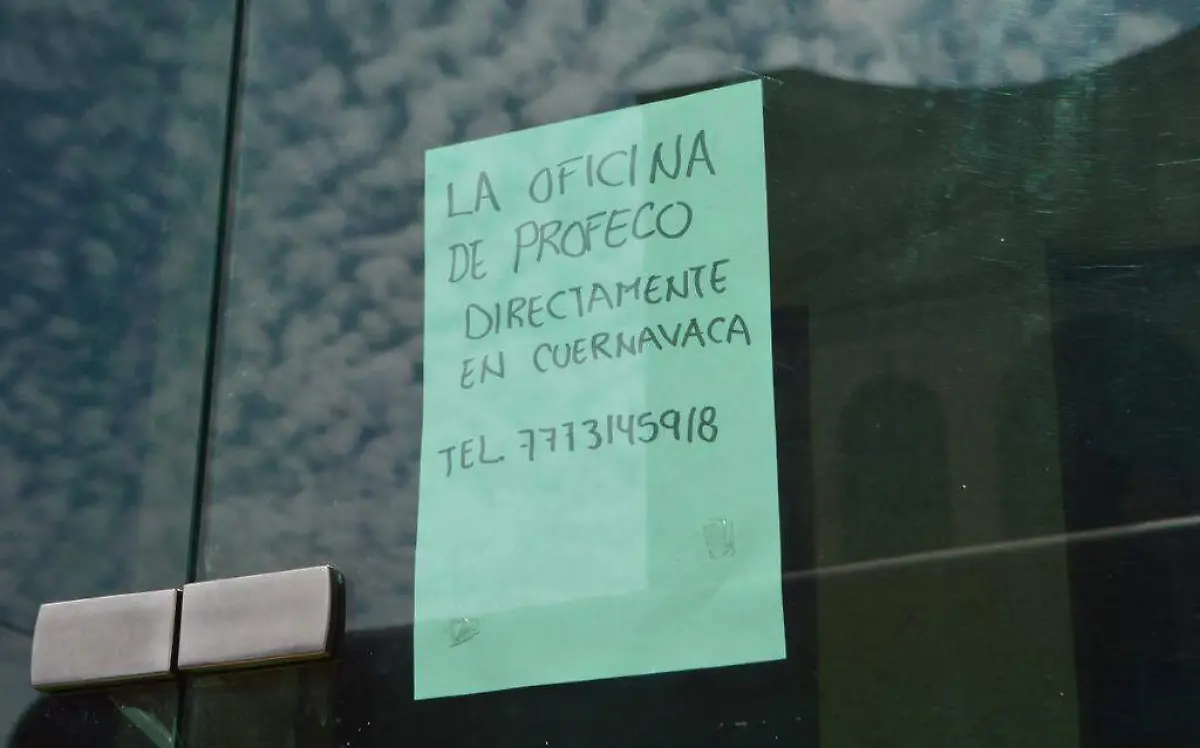 LA OFICINA
DE PROFECO
DIRECTAMENTE
EN CUERNAVACA
TEL. 7773145918